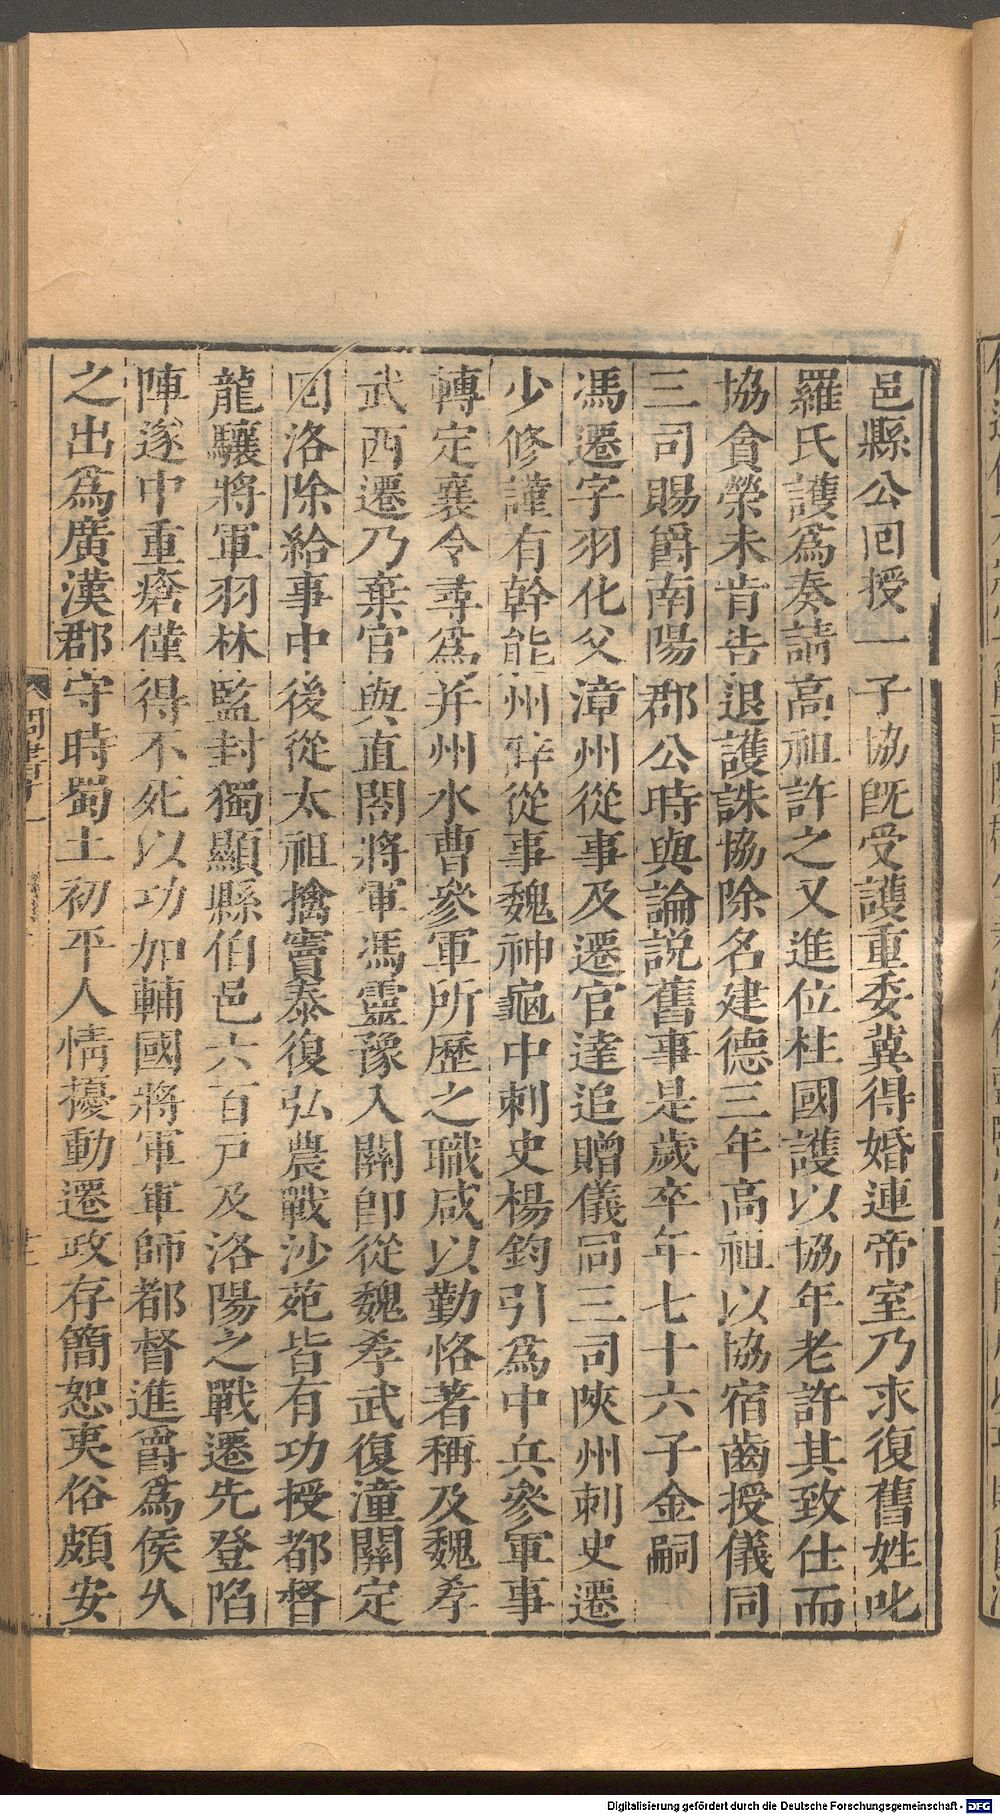 邑縣公回授一子協旣受護重委冀得婚連帝室乃求復舊姓叱
羅氏護爲奏請高祖許之又進位柱國護以協年老許其致仕而
協貪榮未肯告退護誅協除名建德三年高祖以協宿齒授儀同
三司賜爵南陽郡公時與論說舊事是歲卒年七十六子金嗣
馮遷字羽化父漳州從事及遷官達追贈儀同三司陝州刺史遷
少修謹有幹能州辟從事魏神龜中刺史楊鈞引爲中兵參軍事
轉定襄令尋爲并州水曹參軍所歷之職咸以勤恪著稱及魏孝
武西遷乃棄官與直閤將軍馮靈豫入關卽從魏孝武復潼關定
回洛除給事中後從太祖擒竇泰復弘農戰沙苑皆有功授都督
龍驤將軍羽林監封獨顯縣伯邑六百戸及洛陽之戰遷先登陷
陣遂中重瘡僅得不死以功加輔國將軍軍師都督進爵爲侯久
之出爲廣漢郡守時蜀土初平人情擾動遷政存簡恕夷俗頗安
Digitalisierung gefördert durch die Deutsche Forschungsgemeinschaft - DFG